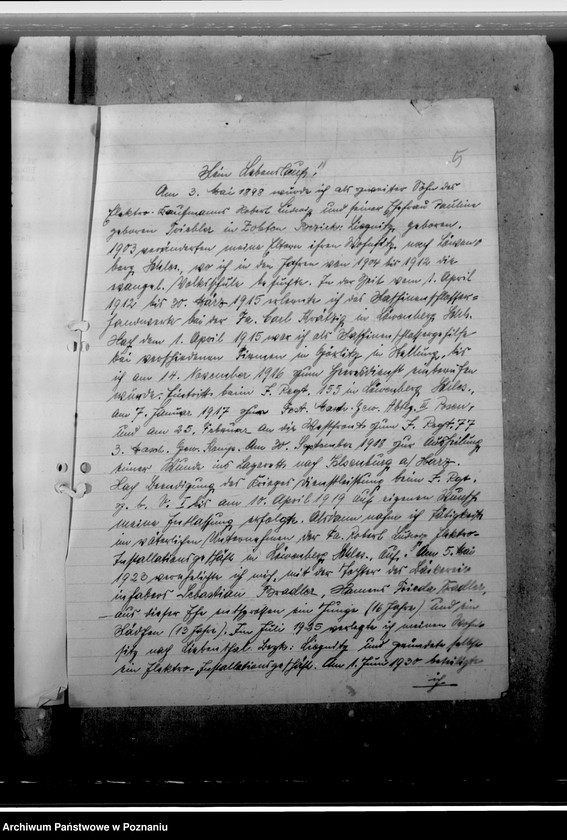 5
Mein Lebenslauf!
Am 3. Mai 1898 wurde ich als zweiter Sohn des
Elektro-Kaufmanns Robert Ludwig und seiner Ehefrau Pauline
geborene Triebler in Zobten Bezirk: Liegnitz geboren.
1903 veränderten meine Eltern ihren Wohnsitz nach Löwen-
berg Schles., wo ich in den Jahren von 1904 bis 1912 die
evangel. Volksschule besuchte. In der Zeit vom 1. April
1912 bis 30. März 1915 erlernte ich das Maschinenschlosser-
handwerk bei der Fa. Carl in Löwenberg Schl.
Nach dem 1. April 1915 war ich als Maschinenschlossergehilfe
bei verschiedenen Firmen in Görlitz in Stellung, bis
ich am 14. November 1916 zum Heeresdienst einberufen
wurde. Eintritt beim J. Regt. 155 in Löwenberg Schles.,
am 7. Januar 1917 zur Gew. Abtlg. II Posen,
und am 25. Februar an die Westfront zum J. Regt. 77
3. Gew. Komp. Am 30. September 1918 zur Ausheilung
einer Wunde ins Lazarett nach Ilsenburg a/ Harz.
Nach Beendigung des Krieges Dienstleistung beim J. Rgt.
z. b. V. I bis am 10. April 1919 auf eigenen Wunsch
meine Entlassung erfolgte. Alsdann nahm ich Tätigkeit
im väterlichen Unternehmen der Fa. Robert Ludwig Elektro-
Installationsgeschäft in Löwenberg Schles., auf. Am 5. Mai
1923 verehelichte ich mich, mit der Tochter des Bäckerei-
inhabers Sebastian Bradler, Namens Frieda Bradler,
aus dieser Ehe entsprossen ein Junge (16 Jahre) und ein
Mädchen (13 Jahre). Im Juli 1925 verlegte ich meinen Wohn-
sitz nach Liebenthal Bezk: Liegnitz und gründete selbst
ein Elektro-Installationsgeschäft. Am 1. Juni 1930 beteiligte
ich
Archiwum Państwowe w Poznaniu